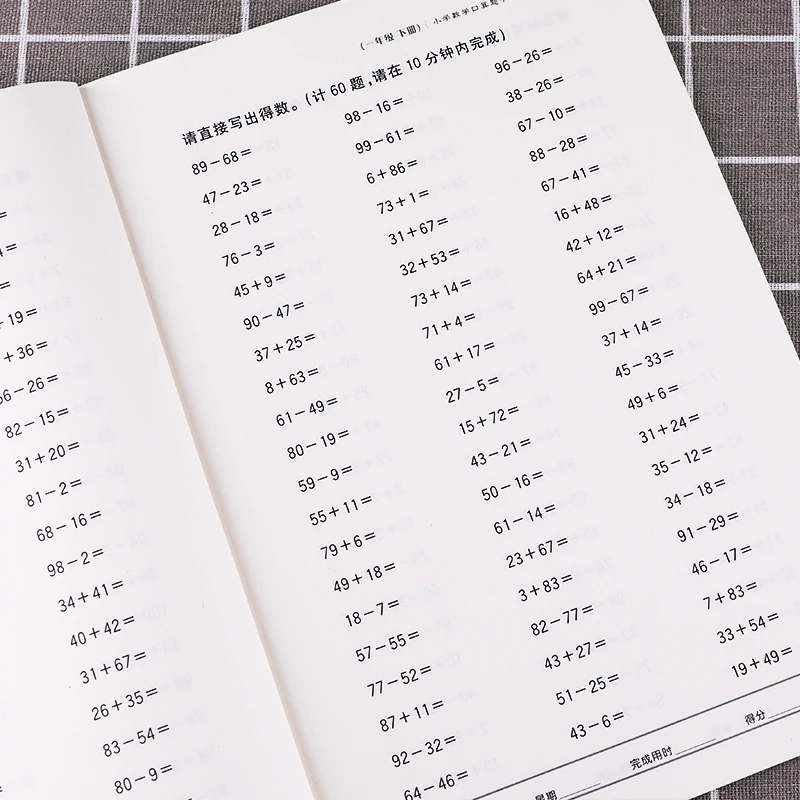 =
4=
=
+19=
+36=
56-26=
82-15=
31+20=
81-2=
68-16=
98-2=
34+41=
40+42=
31+67=
26+35=
83-54=
80-9=
(一年级 下册) | 小学数学口算题
请直接写出得数。(计 60 题,请在 10 分钟内完成)
89-68=
47-23=
28-18=
76-3=
45+9=
90-47=
37+25=
8+63=
61-49=
80-19=
59-9=
55+11=
79+6=
49+18=
18-7=
57-55=
77-52=
87+11=
92-32=
64-46=
98-16=
99-61=
6+86=
73+1=
31+67=
32+53=
73+14=
71+4=
61+17=
27-5=
15+72=
43-21=
50-16=
61-14=
23+67=
3+83=
82-77=
43+27=
51-25=
43-6=
96-26=
38-26=
67-10=
88-28=
67-41=
16+48=
42+12=
64+21=
99-67=
37+14=
45-33=
49+6=
31+24=
35-12=
34-18=
91-29=
46-17=
7+83=
33+54=
19+49=
星期 完成用时 得分